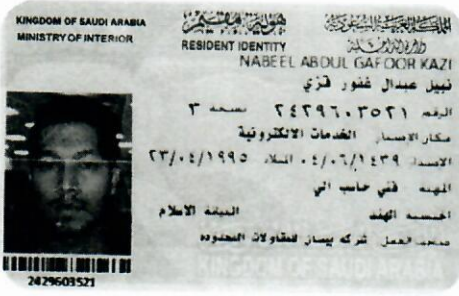 KINGDOM OF SAUDI ARABIA
MINISTRY OF INTERIOR
هوية مقيم
RESIDENT IDENTITY
المملكة العربية السعودية
وزارة الداخلية
NABEEL ABDUL GAFOOR KAZI
نبيل عبدال غفور قزي
الرقم ٢٤٢٩٦٠٣٥٢١ نسخة ٣
مكان الاصدار الخدمات الالكترونية
الاصدار ٠٤/٠٦/١٤٣٩ الميلاد ٢٣/٠٤/١٩٩٥
المهنة فني حاسب الي
الجنسية الهند الديانة الاسلام
صاحب العمل شركه بيسان للمقاولات المحدوده
KINGDOM OF SAUDI ARABIA
2429603521